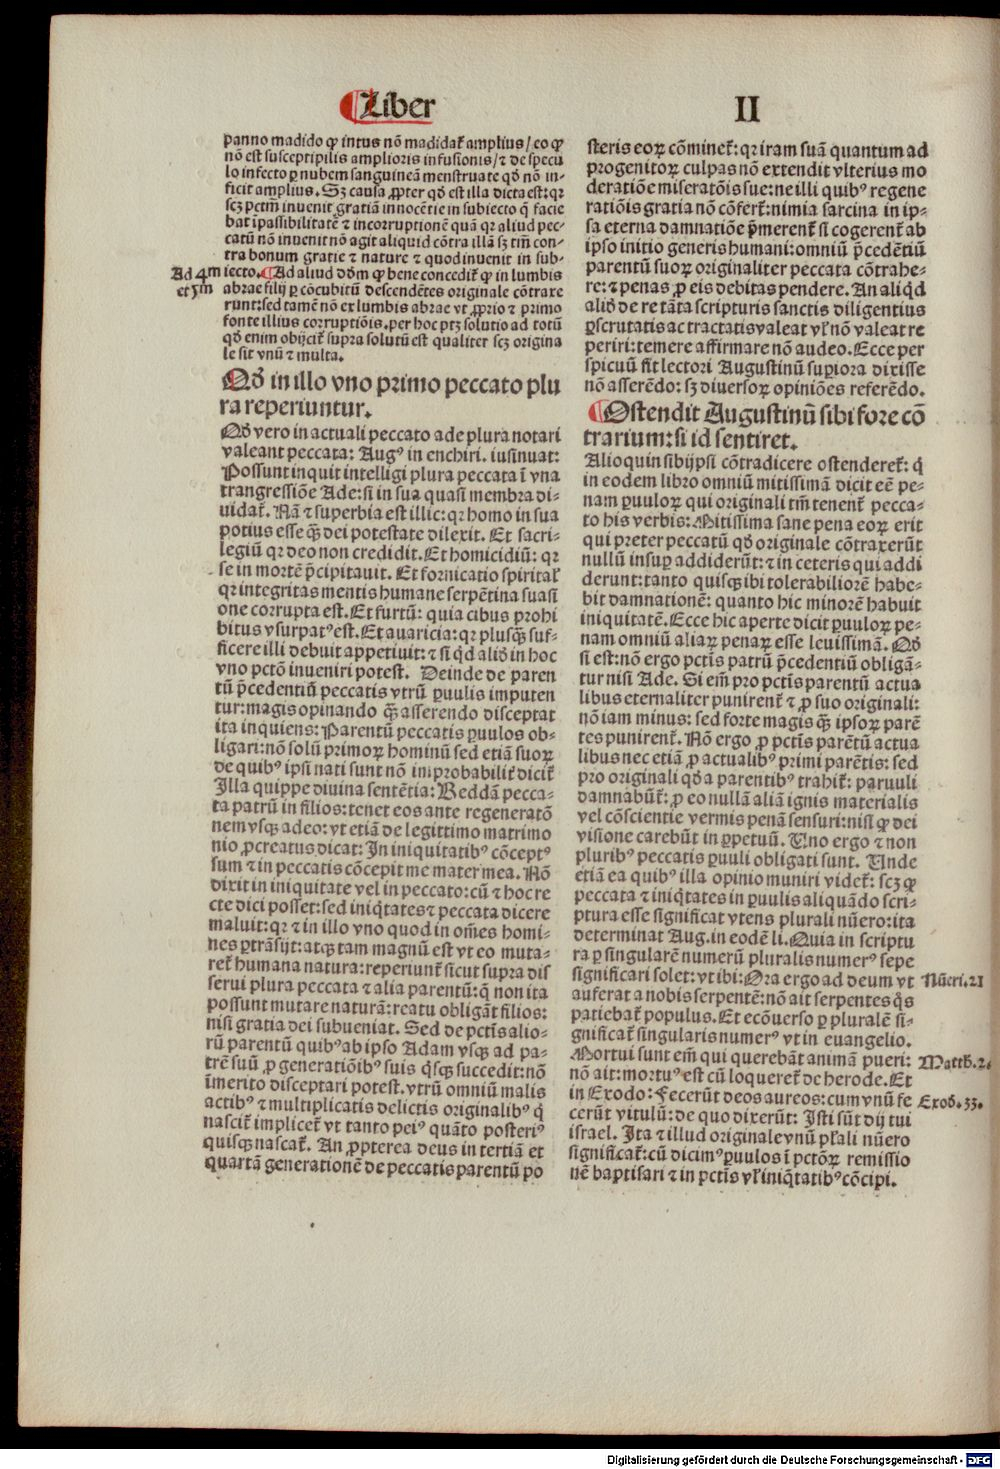 Liber
II
panno madido ꝙ intus nō madidat᷑ amplius/ eo ꝙ
nō est susceptipilis amplioris infusionis/ ⁊ de specu
lo infecto ꝑ nubem sanguineā menstruate qd̄ nō in⸗
ficit amplius. Sꝫ causa ꝓpter qd̄ est illa dicta est: qꝛ
scꝫ pctm̄ inuenit gratiā innocētie in subiecto q̄ facie
bat īpassibilitatē ⁊ incorruptionē quā qꝛ aliud pec⸗
catū nō inuenit nō agit aliquid cōtra illā sꝫ tm̄ con⸗
tra bonum gratie ⁊ nature ⁊ quod inuenit in sub⸗
iecto. Ad aliud dōm̄ ꝙ bene concedit᷑ ꝙ in lumbis
Ad 4m
et 5m
abrae filij ꝑ cōcubitū descendētes originale cōtraxe
runt: sed tamē nō ex lumbis abrae vt ꝓprio ⁊ primo
fonte illius corruptiōis. per hoc ptꝫ solutio ad totū
qd̄ enim obijcit᷑ supra solutū est qualiter scꝫ origina
le sit vnū ⁊ multa.
Qd̄ in illo vno primo peccato plu
ra reperiuntur.
Qd̄ vero in actuali peccato ade plura notari
valeant peccata: Augꝰ in enchiri. iusinuat:
Possunt inquit intelligi plura peccata ī vna
trangressiōe Ade: si in sua quasi membra di⸗
uidat᷑. Nā ⁊ superbia est illic: qꝛ homo in sua
potius esse qꝫ̄ dei potestate dilexit. Et sacri⸗
legiū qꝛ deo non credidit. Et homicidiū: qꝛ
se in mortē p̄cipitauit. Et fornicatio spiritał
qꝛ integritas mentis humane serpētina suasi
one corrupta est. Et furtū: quia cibus prohi
bitus vsurpatꝰ est. Et auaricia: qꝛ plusqꝫ̄ suf⸗
ficere illi debuit appetiuit: ⁊ si qd̄ aliđ in hoc
vno pctō inueniri potest. Deinde de paren
tū p̄cedentiū peccatis vtrū ꝑuulis imputen
tur: magis opinando qꝫ̄ asserendo disceptat
ita inquiens: Parentū peccatis ꝑuulos ob⸗
ligari: nō solū primoꝝ hominū sed etiā suoꝝ
de quibꝰ ipsi nati sunt nō improbabilit᷑ dicit᷑
Illa quippe diuina sentētia: Reddā pecca⸗
ta patrū in filios: tenet eos ante regeneratō
nem vsqꝫ adeo: vt etiā de legittimo matrimo
nio ꝓcreatus dicat: In iniquitatibꝰ cōceptꝰ
sum ⁊ in peccatis cōcepit me mater mea. Nō
dixit in iniquitate vel in peccato: cū ⁊ hoc re
cte dici posset: sed iniq̄tates ⁊ peccata dicere
maluit: qꝛ ⁊ in illo vno quod in om̄es homi⸗
nes ꝑtrāsijt: atqꝫ tam magnū est vt eo muta⸗
ret᷑ humana natura: reperiunt᷑ sicut supra dis
serui plura peccata ⁊ alia parentū: q̄ non ita
possunt mutare naturā: reatu obligāt filios:
nisi gratia dei subueniat. Sed de pctīs alio⸗
rū parentū quibꝰ ab ipso Adam vsqꝫ ad pa⸗
trē suū ꝓ generatiōibꝰ suis q̄sqꝫ succedit: nō
īmerito disceptari potest. vtrū omniū malis
actibꝰ ⁊ multiplicatis delictis originalibꝰ q̄
nascit᷑ implicet᷑ vt tanto peiꝰ quāto posteriꝰ
quisqꝫ nascat᷑. An ꝓpterea deus in tertiā et
quartā generationē de peccatis parentū po
steris eoꝝ cōminet᷑: qꝛ iram suā quantum ad
progenitoꝝ culpas nō extendit vlterius mo
deratiōe miseratōis sue: ne illi quibꝰ regene
ratiōis gratia nō cōfert᷑: nimia sarcina in ip⸗
sa eterna damnatiōe p̄merent᷑ si cogerent᷑ ab
ipso initio generis humani: omniū p̄cedētiū
parentū suoꝝ originaliter peccata cōtrahe⸗
re: ⁊ penas ꝓ eis debitas pendere. An aliq̄d
aliđ de re tāta scripturis sanctis diligentius
ꝑscrutatis ac tractatis valeat vł nō valeat re
periri: temere affirmare nō audeo. Ecce per
spicuū fit lectori Augustinū suꝑiora dixisse
nō asserēdo: sꝫ diuersoꝝ opiniōes referēdo.
Ostendit Augustinū sibi fore cō
trarium: si id sentiret.
Alioquin sibijpsi cōtradicere ostenderet᷑: q̄
in eodem libro omniū mitissimā dicit eē pe⸗
nam ꝑuuloꝝ qui originali tm̄ tenent᷑ pecca⸗
to his verbis: Mitissima sane pena eoꝝ erit
qui preter peccatū qd̄ originale cōtraxerūt
nullū insuꝑ addiderūt: ⁊ in ceteris qui addi
derunt: tanto quisqꝫ ibi tolerabiliorē habe⸗
bit damnationē: quanto hic minorē habuit
iniquitatē. Ecce hic aperte dicit ꝑuuloꝝ pe⸗
nam omniū aliaꝝ penaꝝ esse leuissimā. Qd̄
si est: nō ergo pctīs patrū p̄cedentiū obligā⸗
tur nisi Ade. Si em̄ pro pctīs parentū actua
libus eternaliter punirent᷑ ⁊ ꝓ suo originali:
nō iam minus: sed forte magis qꝫ̄ ipsoꝝ parē
tes punirent᷑. Nō ergo ꝓ pctīs parētū actua
libus nec etiā ꝓ actualibꝰ primi parētis: sed
pro originali qd̄ a parentibꝰ trahit᷑: paruuli
damnabūt᷑: ꝓ eo nullā aliā ignis materialis
vel cōscientie vermis penā sensuri: nisi ꝙ dei
visione carebūt in ꝑpetuū. Uno ergo ⁊ non
pluribꝰ peccatis ꝑuuli obligati sunt. Unde
etiā ea quibꝰ illa opinio muniri videt᷑: scꝫ ꝙ
peccata ⁊ iniq̄tates in ꝑuulis aliquādo scri⸗
ptura esse significat vtens plurali nūero: ita
determinat Aug. in eodē li. Quia in scriptu
ra ꝑ singularē numerū pluralis numerꝰ sepe
significari solet: vt ibi: Ora ergo ad deum vt
Nūeri. 21
auferat a nobis serpentē: nō ait serpentes q̄s
patiebat᷑ populus. Et ecōuerso ꝑ pluralē si⸗
gnificat᷑ singularis numerꝰ vt in euangelio.
Mortui sunt em̄ qui querebāt animā pueri:
Matth. 2.
nō ait: mortuꝰ est cū loqueret᷑ de herode. Et
in Exodo: Fecerūt deos aureos: cum vnū fe
Exod. 33.
cerūt vitulū: de quo dixerūt: Isti sūt dij tui
israel. Ita ⁊ illud originale vnū płali nūero
significat᷑: cū dicimꝰ ꝑuulos ī pctōꝝ remissio
nē baptisari ⁊ in pctīs vł iniq̄tatibꝰ cōcipi.
Digitalisierung gefördert durch die Deutsche Forschungsgemeinschaft - DFG